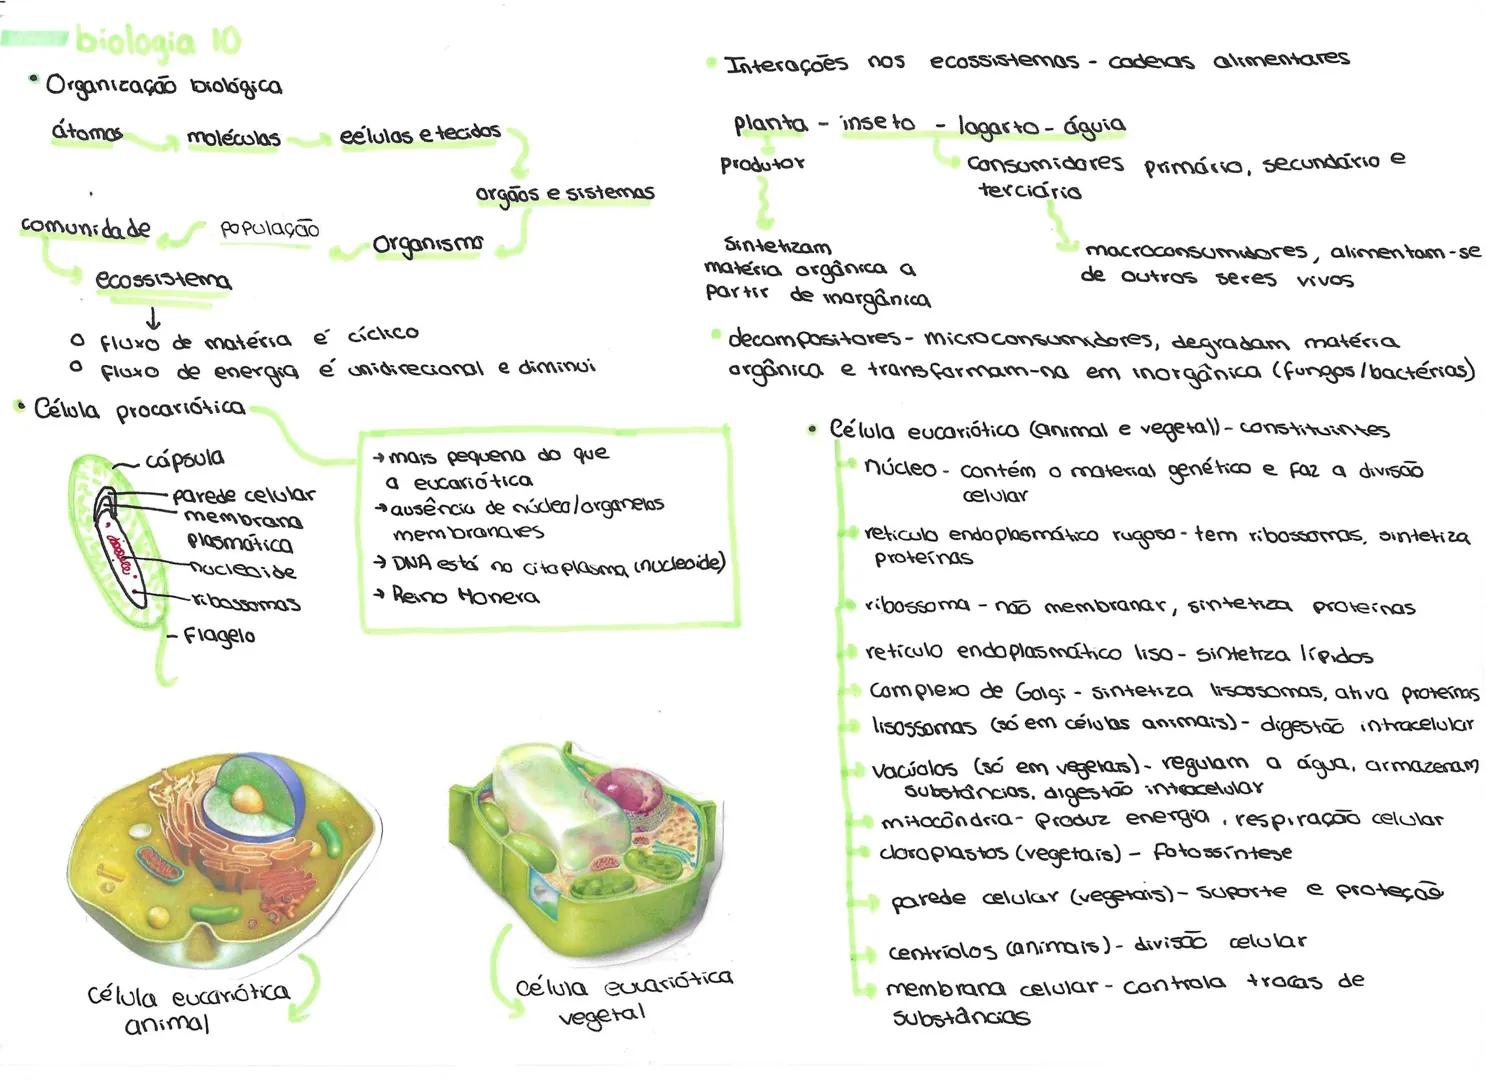 biologia 10
• Organização biológica
átomos moléculas células e tecidos
orgãos e sistemas
comunidade população Organismo
ecossistema
o fluxo de matéria é cíclico
o fluxo de energia é unidirecional e diminui
• Célula procariótica
cápsula
parede celular
membrana
plasmática
nucleoide
ribossomas
- Flagelo
→ mais pequena do que
a eucariótica
→ ausência de núcleo/organelos
membranares
→ DNA está no citoplasma (nucleoide)
→ Reino Monera
célula eucariótica
animal
célula eucariótica
vegetal
• Interações nos ecossistemas - cadeias alimentares
planta - inseto - lagarto - águia
Produtor
Consumidores primário, secundário e
terciário
Sintetizam
matéria orgânica a
partir de inorgânica
macroconsumidores, alimentam-se
de outros seres vivos
• decompositores - microconsumidores, degradam matéria
orgânica e transformam-na em inorgânica (fungos/bactérias)
• Célula eucariótica (animal e vegetal) - constituintes
núcleo - contém o material genético e faz a divisão
celular
retículo endoplasmático rugoso - tem ribossomas, sintetiza
proteínas
ribossoma - não membranar, sintetiza proteínas
retículo endoplasmático liso - sintetiza lípidos
Complexo de Golgi - sintetiza lisossomas, ativa proteínas
lisossomas (só em células animais) - digestão intracelular
vacúolos (só em vegetais) - regulam a água, armazenam
substâncias, digestão intracelular
mitocôndria - produz energia, respiração celular
cloroplastos (vegetais) - fotossíntese
parede celular (vegetais) - suporte e proteção
centríolos (animais) - divisão celular
membrana celular - controla trocas de
substâncias